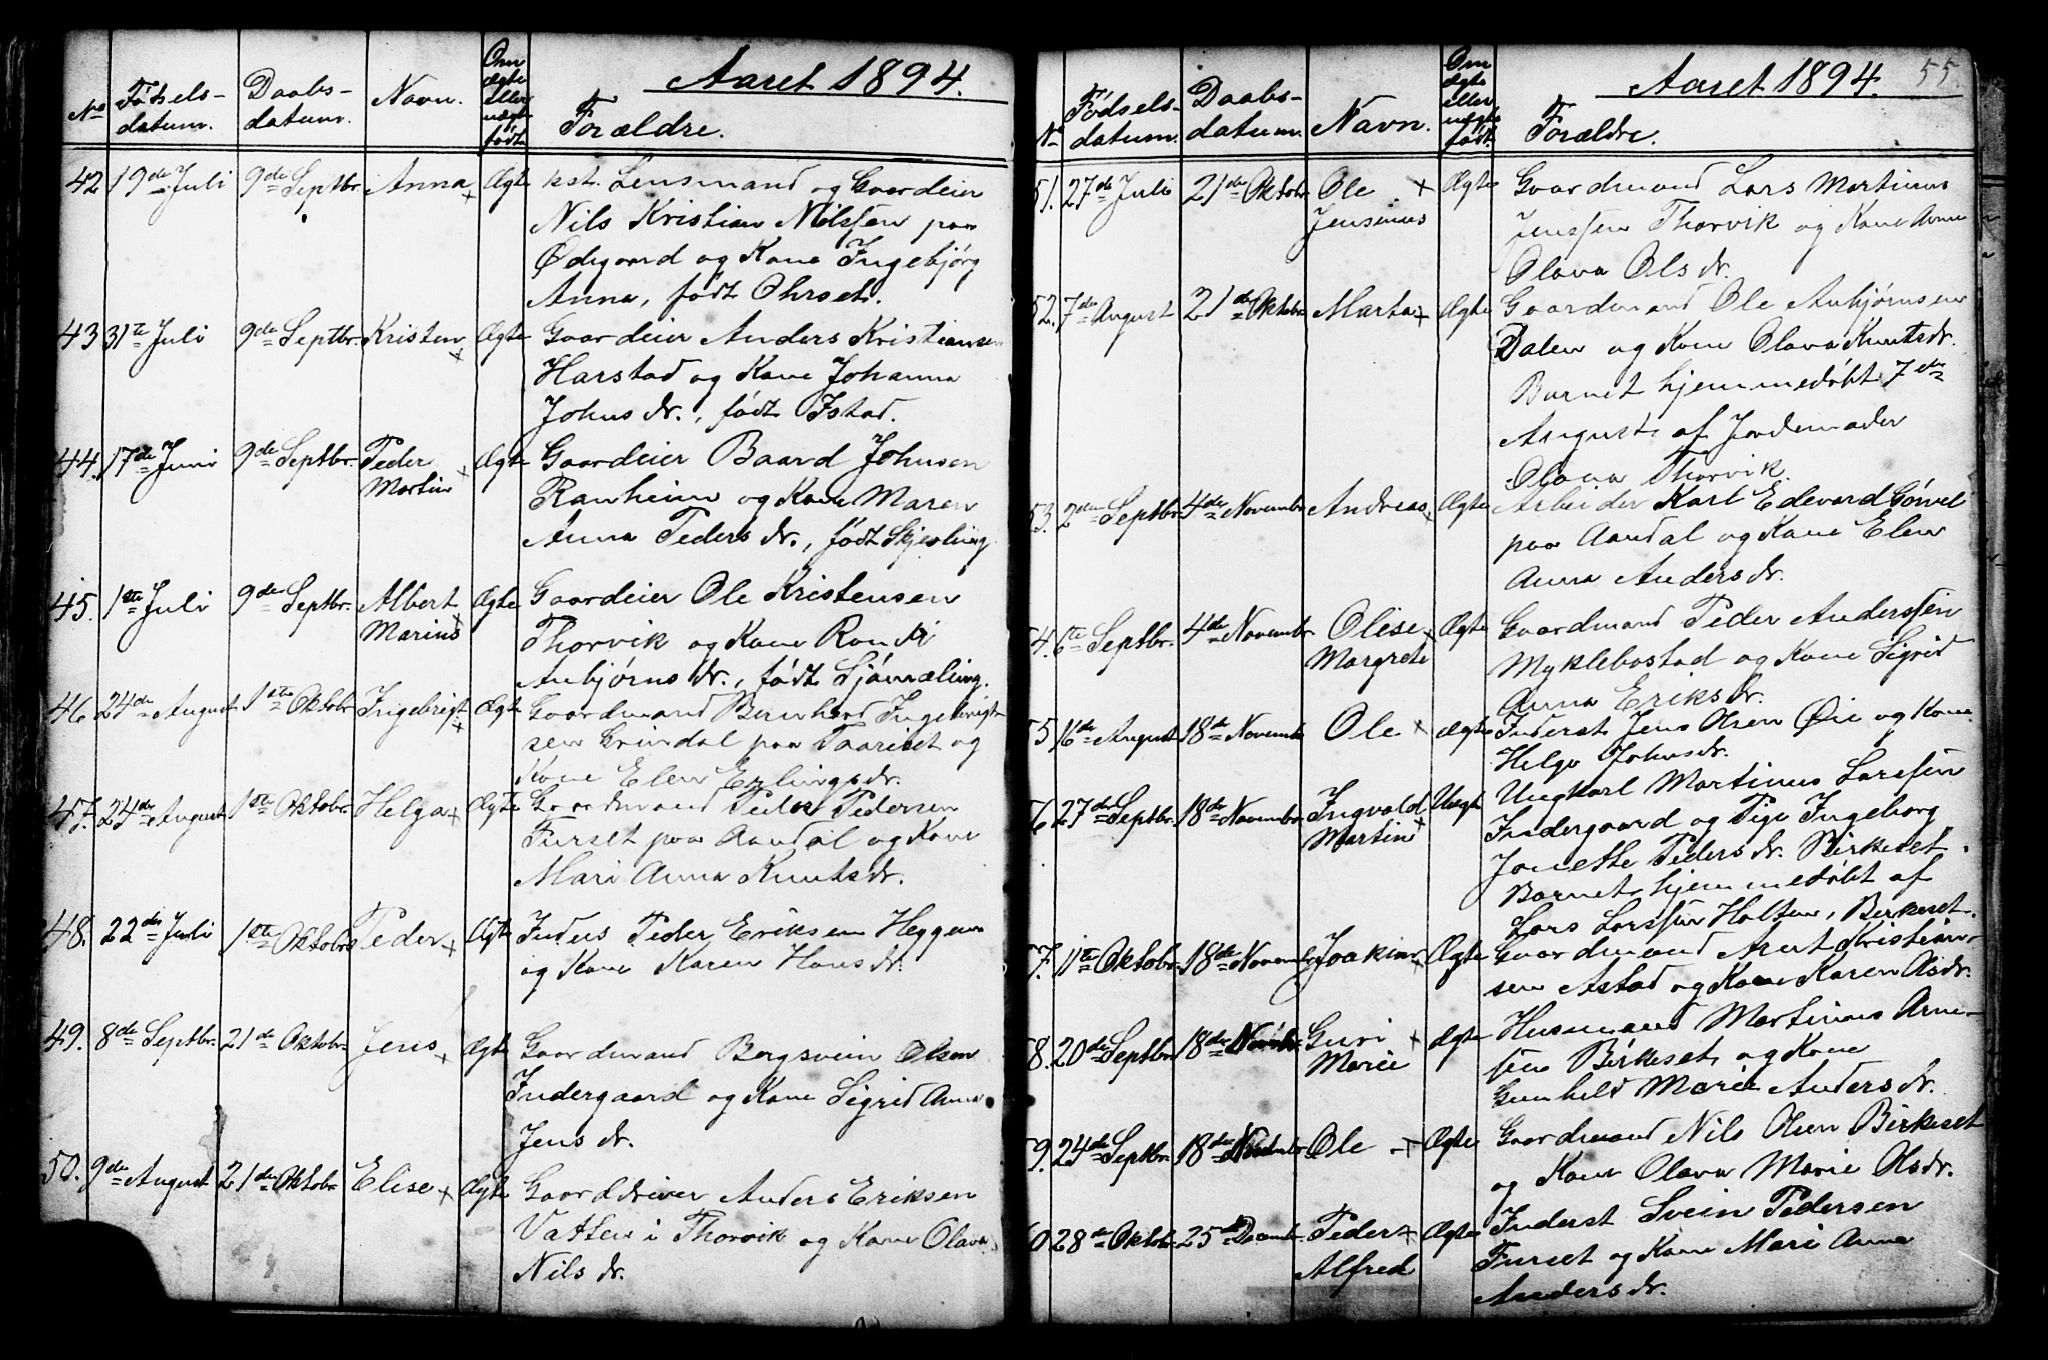 Aaret 1894.
No Fødsels-datum. Daabs-datum. Navn. Om ægte eller uægte født Forældre.
42 19de Juli 9de Septbr. Anna Ægte kst. Lensmand og Gaardeier
Nils Kristian Nilssen paa
Ødegaard og Kone Ingebjørg
Anna, født Ohrset.
43 31te Juli 9de Septbr. Kristen Ægte Gaardeier Anders Kristiansen
Harstad og Kone Johanna
Johnsdr., født Istad.
44. 17de Juni 9de Septbr. Peder Ægte Gaardeier Baard Johnsen
Martin Ranheim og Kone Maren
Anna Pedersdr., født Skjesling
45. 1ste Juli 9de Septbr. Albert Ægte Gaardeier Ole Kristensen
Marius Thorvik og Kone Randi
Anbjørnsdr., født Sjømæling.
46 24de August 1ste Oktobr Ingebrigt Ægte Gaardmand Bernhard Ingebrigt-
sen Grindal paa Taariset og
Kone Elen Erlingsdr.
47. 24de August 1ste Oktobr. Helga Ægte Gaardmand Peder Pedersen
Furset paa Aandal og Kone
Mari Anna Knutsdr.
48. 22de Juli 1ste Oktobr Peder Ægte Inders Peder Eriksen Heggem
og Kone Karen Hansdr.
49. 8de Septbr. 21de Oktobr. Jens Ægte Gaardmand Bergsvein Olsen
Indergaard og Kone Sigrid Anna
Jensdr.
50. 9de August 21de Oktobr Elise Ægte Gaarddriver Anders Eriksen
Vatten i Thorvik og Kone Olava
Nilsdr.
Aaret 1894. 55
No Fødsels-datum. Daabs-datum. Navn. Om ægte eller uægte født. Forældre.
51. 27de Juli 21de Oktobr Ole Ægte Gaardmand Lars Martinus
Jensinus Jenssen Thorvik og Kone Anne
Olava Olsdr.
52. 7de August 21de Oktobr Marta Ægte Gaardmand Ole Anbjørnsen
Dalen og Kone Olava Knutsdr.
Barnet hjemmedøbt 7de
August af Jordemoder
Olava Thorvik.
53. 2den Septbr. 4de Novembr Andreas Ægte Arbeider Karl Edevard Gørvel
paa Aandal og Kone Elen
Anna Andersdr.
4. 6te Septbr. 4de Novembr Olise Ægte Gaardmand Peder Anderssen
Margrete Myklebostad og Kone Sigrid
Anna Eriksdr.
5 16de August 18de Novemb Ole ægte Inderst Jens Olsen Øie og Kone
Helga Johnsdr.
6 27de Septbr. 18de Novembr Ingvald Uægt Ungkarl Martinus Larssen
Martin Indergaard og Pige Ingeborg
Jonette Pedersdr. Birkeset.
Barnet hjemmedøbt af
Lars Larssen Holten, Birkeset.
7. 11te Oktobr. 18de Novembr Joakim Ægte Gaardmand Arnt Kristian-
sen Astad og Kone Karen Olsdr.
8. 20de Septbr 18de Novbr. Guri ægte Husmand Martinus Arne-
Marie sen Birkeset og Kone
Gunhild Marie Andersdr.
9. 24de Septbr. 18de Novembr Ole Ægte Gaardmand Nils Olsen Birkeset
og Kone Olava Marie Olsdr.
0. 28de Oktobr. 25de Decembr. Peder Ægte Inderst Svein Pedersen
Alfred Furset og Kone Mari Anna
Andersdr.